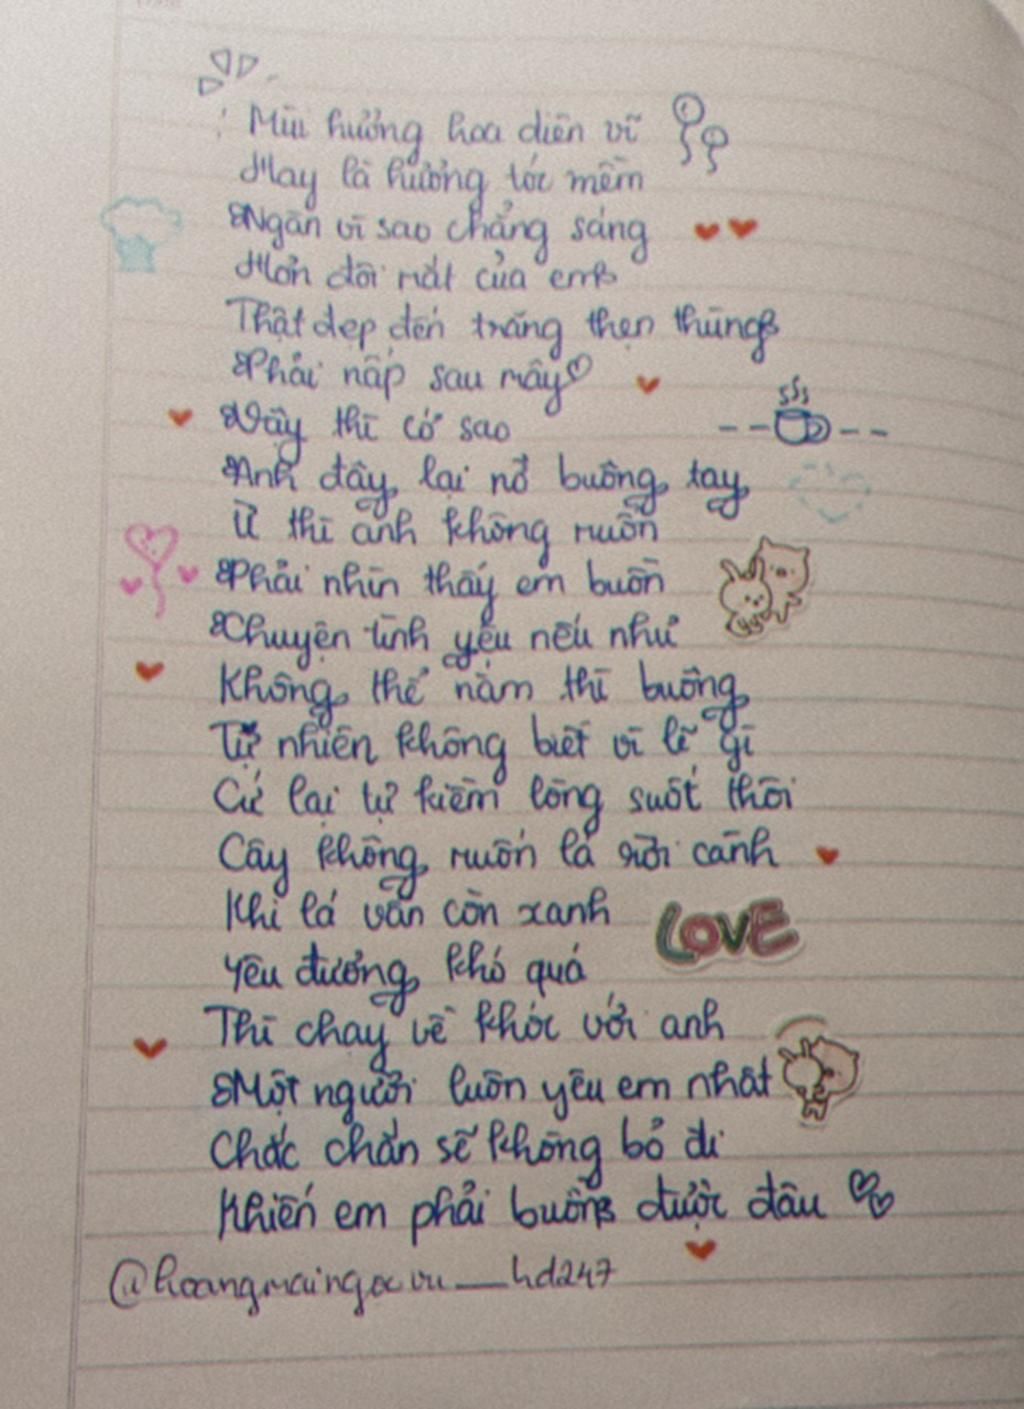 Mùi hương hoa diên vĩ
Hay là hương tóc mềm
Ngàn vì sao chẳng sáng
Hơn đôi mắt của em
Thật đẹp đến trăng thẹn thùng
Phải nấp sau mây
Vậy thì cớ sao
Anh đây lại nỡ buông tay
Ừ thì anh không muốn
Phải nhìn thấy em buồn
Chuyện tình yêu nếu như
Không thể nắm thì buông
Tự nhiên không biết vì lẽ gì
Cứ lại tự kiềm lòng suốt thôi
Cây không muốn lá rời cành
Khi lá vẫn còn xanh
Yêu đương khó quá
LOVE
Thì chạy về khóc với anh
Một người luôn yêu em nhất
Chắc chắn sẽ không bỏ đi
Khiến em phải buồn được đâu
@hoangmaingocvu__hd247